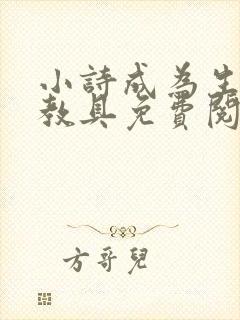 小詩成為生
教具免費閱
方哥兒